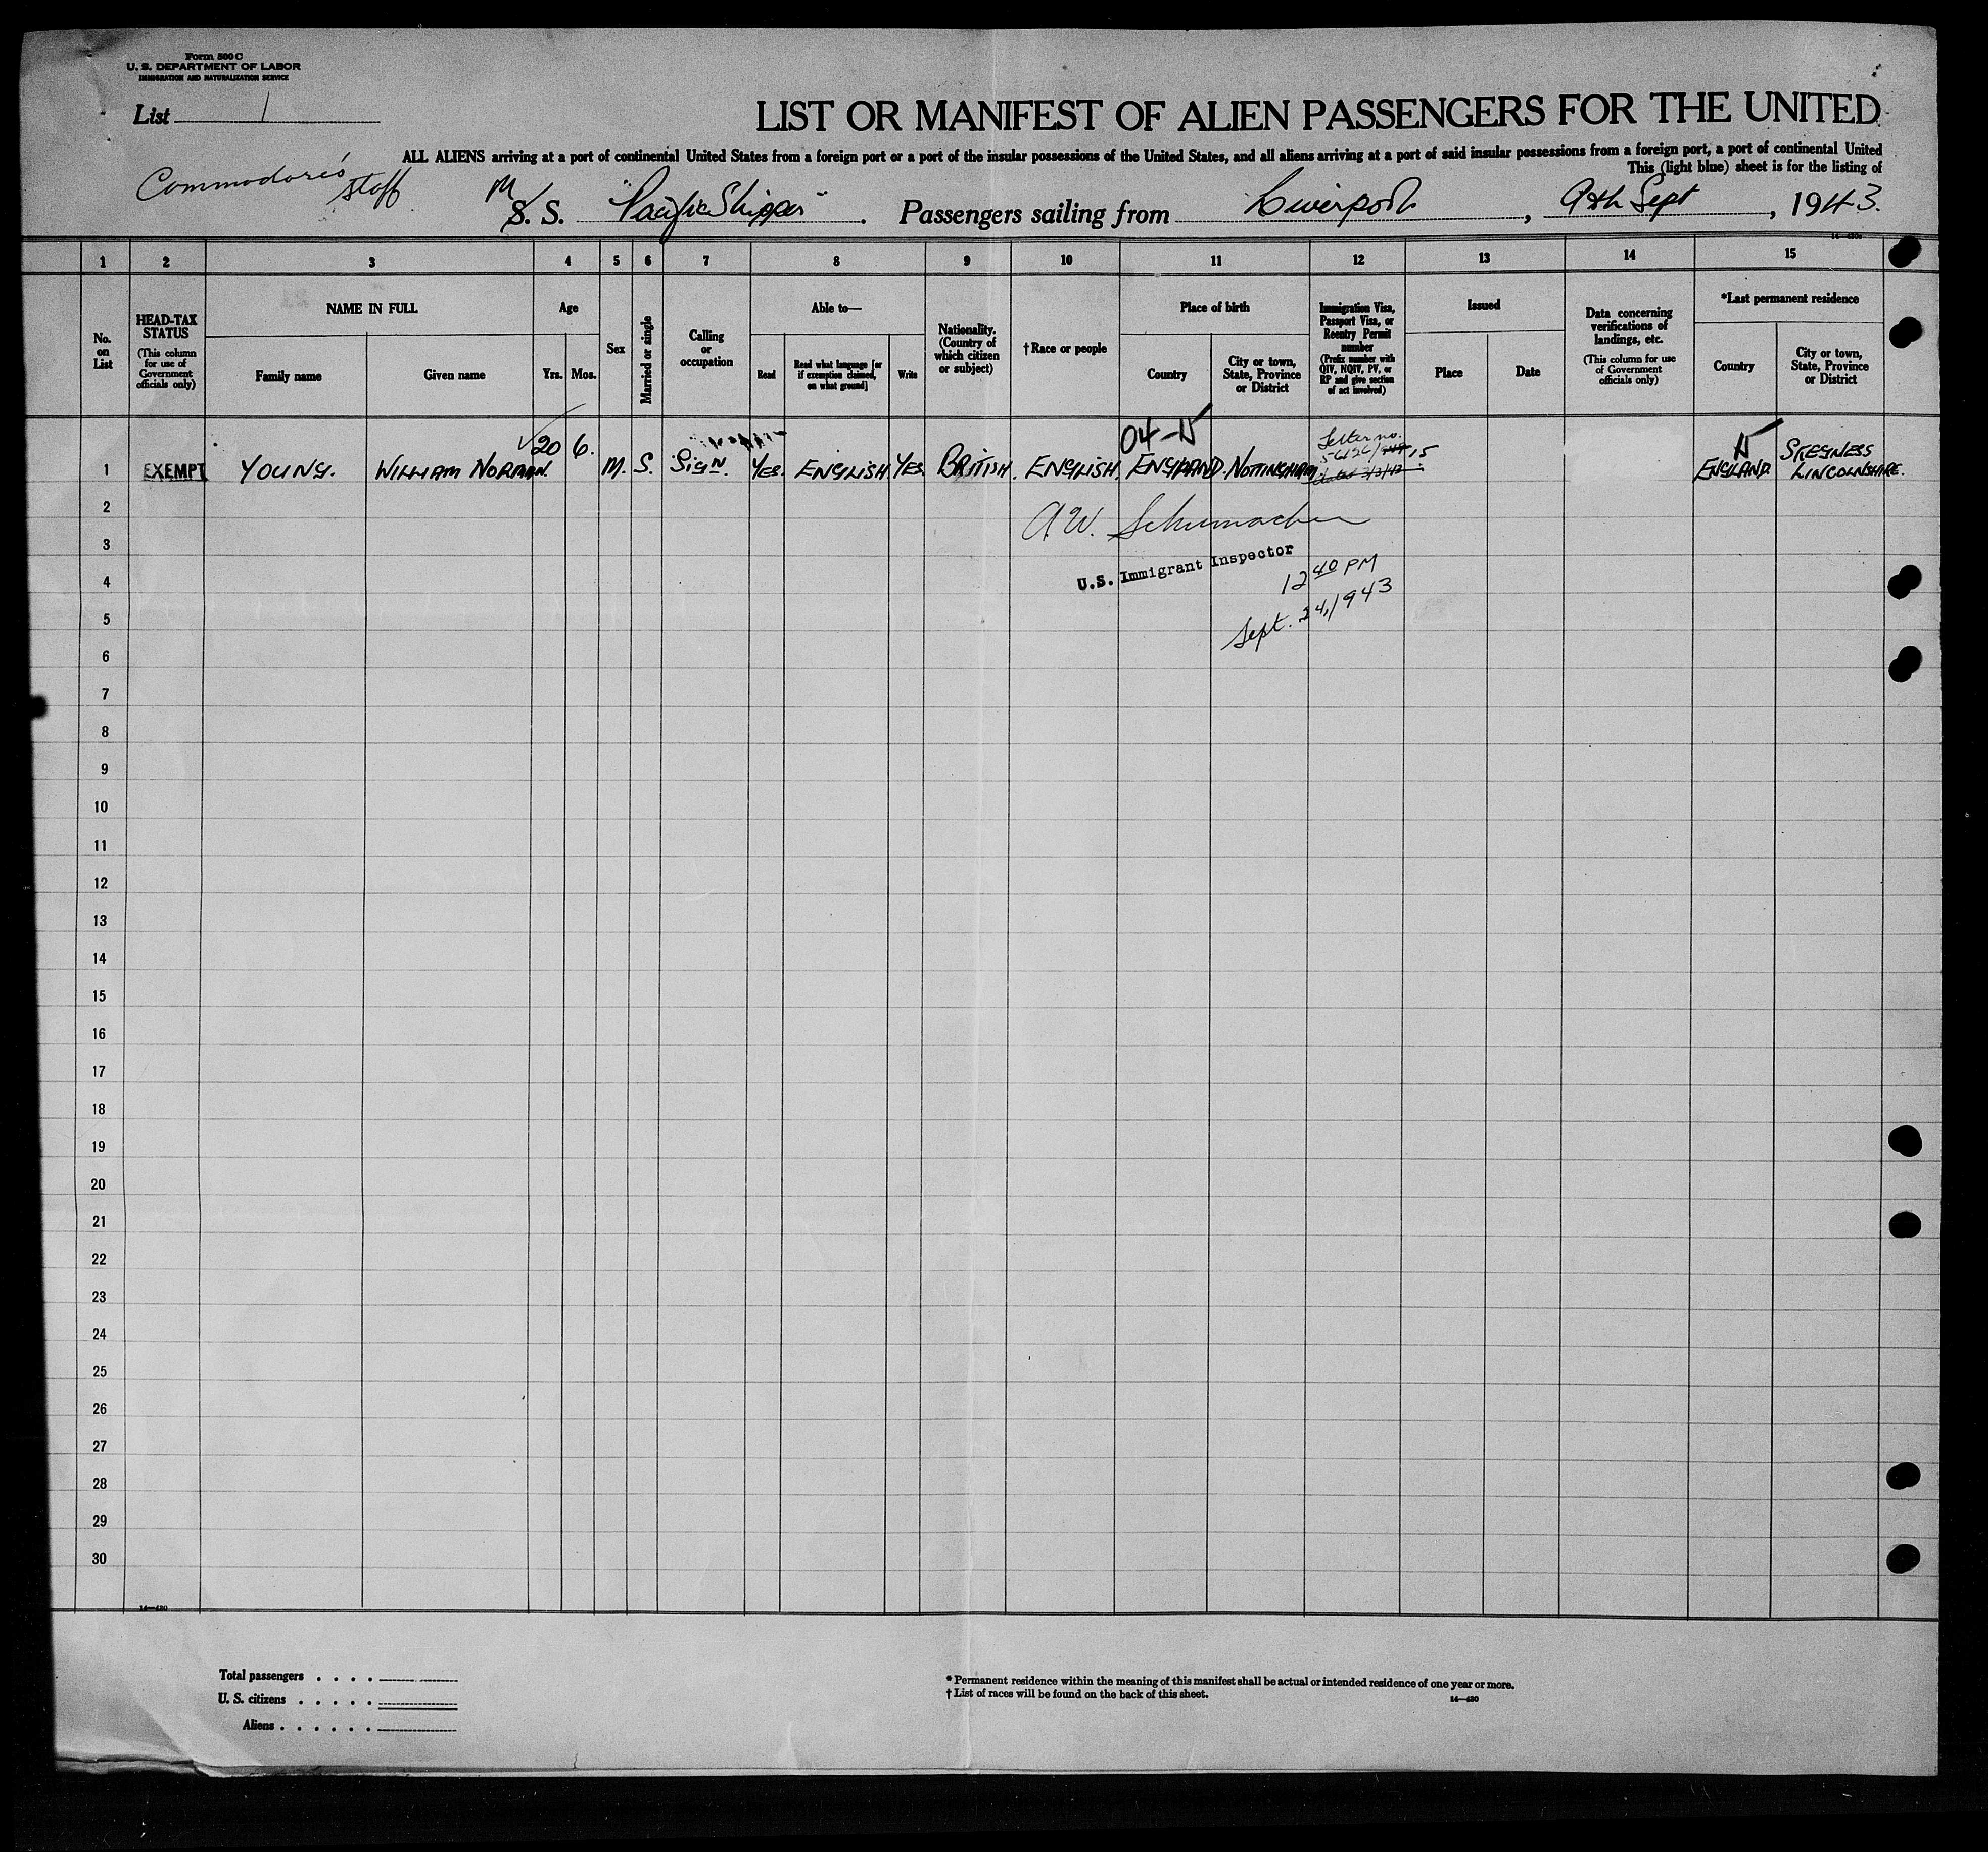 Form 500 C
U. S. DEPARTMENT OF LABOR
IMMIGRATION AND NATURALIZATION SERVICE
List 1
LIST OR MANIFEST OF ALIEN PASSENGERS FOR THE UNITED
ALL ALIENS arriving at a port of continental United States from a foreign port or a port of the insular possessions of the United States, and all aliens arriving at a port of said insular possessions from a foreign port, a port of continental United
This (light blue) sheet is for the listing of
Commodore's staff
M/S. S. Pacific Shipper. Passengers sailing from Liverpool, 9th Sept, 1943.
14—430a
1 2 3 4 5 6 7 8 9 10 11 12 13 14 15
No. on List
HEAD-TAX STATUS
(This column for use of Government officials only)
NAME IN FULL
Family name
Given name
Age
Yrs.
Mos.
Sex
Married or single
Calling or occupation
Able to—
Read
Read what language [or if exemption claimed, on what ground]
Write
Nationality. (Country of which citizen or subject)
†Race or people
Place of birth
Country
City or town, State, Province or District
Immigration Visa, Passport Visa, or Reentry Permit number
(Prefix number with QIV, NQIV, PV, or RP and give section of act involved)
Issued
Place
Date
Data concerning verifications of landings, etc.
(This column for use of Government officials only)
*Last permanent residence
Country
City or town, State, Province or District
04-
1 EXEMPT YOUNG. WILLIAM NORMAN. 20 6. M. S. SIGN. YES. ENGLISH. YES. BRITISH. ENGLISH. ENGLAND. NOTTINGHAM. Letter no. 56126/ 15 ENGLAND. SKEGNESS LINCOLNSHIRE.
2
A.W. Schumacher
3
U.S. Immigrant Inspector
4
12 40 PM
5
Sept. 24, 1943
6
7
8
9
10
11
12
13
14
15
16
17
18
19
20
21
22
23
24
25
26
27
28
29
30
14—430
Total passengers . . . .
U. S. citizens . . . . .
Aliens . . . . . .
* Permanent residence within the meaning of this manifest shall be actual or intended residence of one year or more.
† List of races will be found on the back of this sheet.
14—430